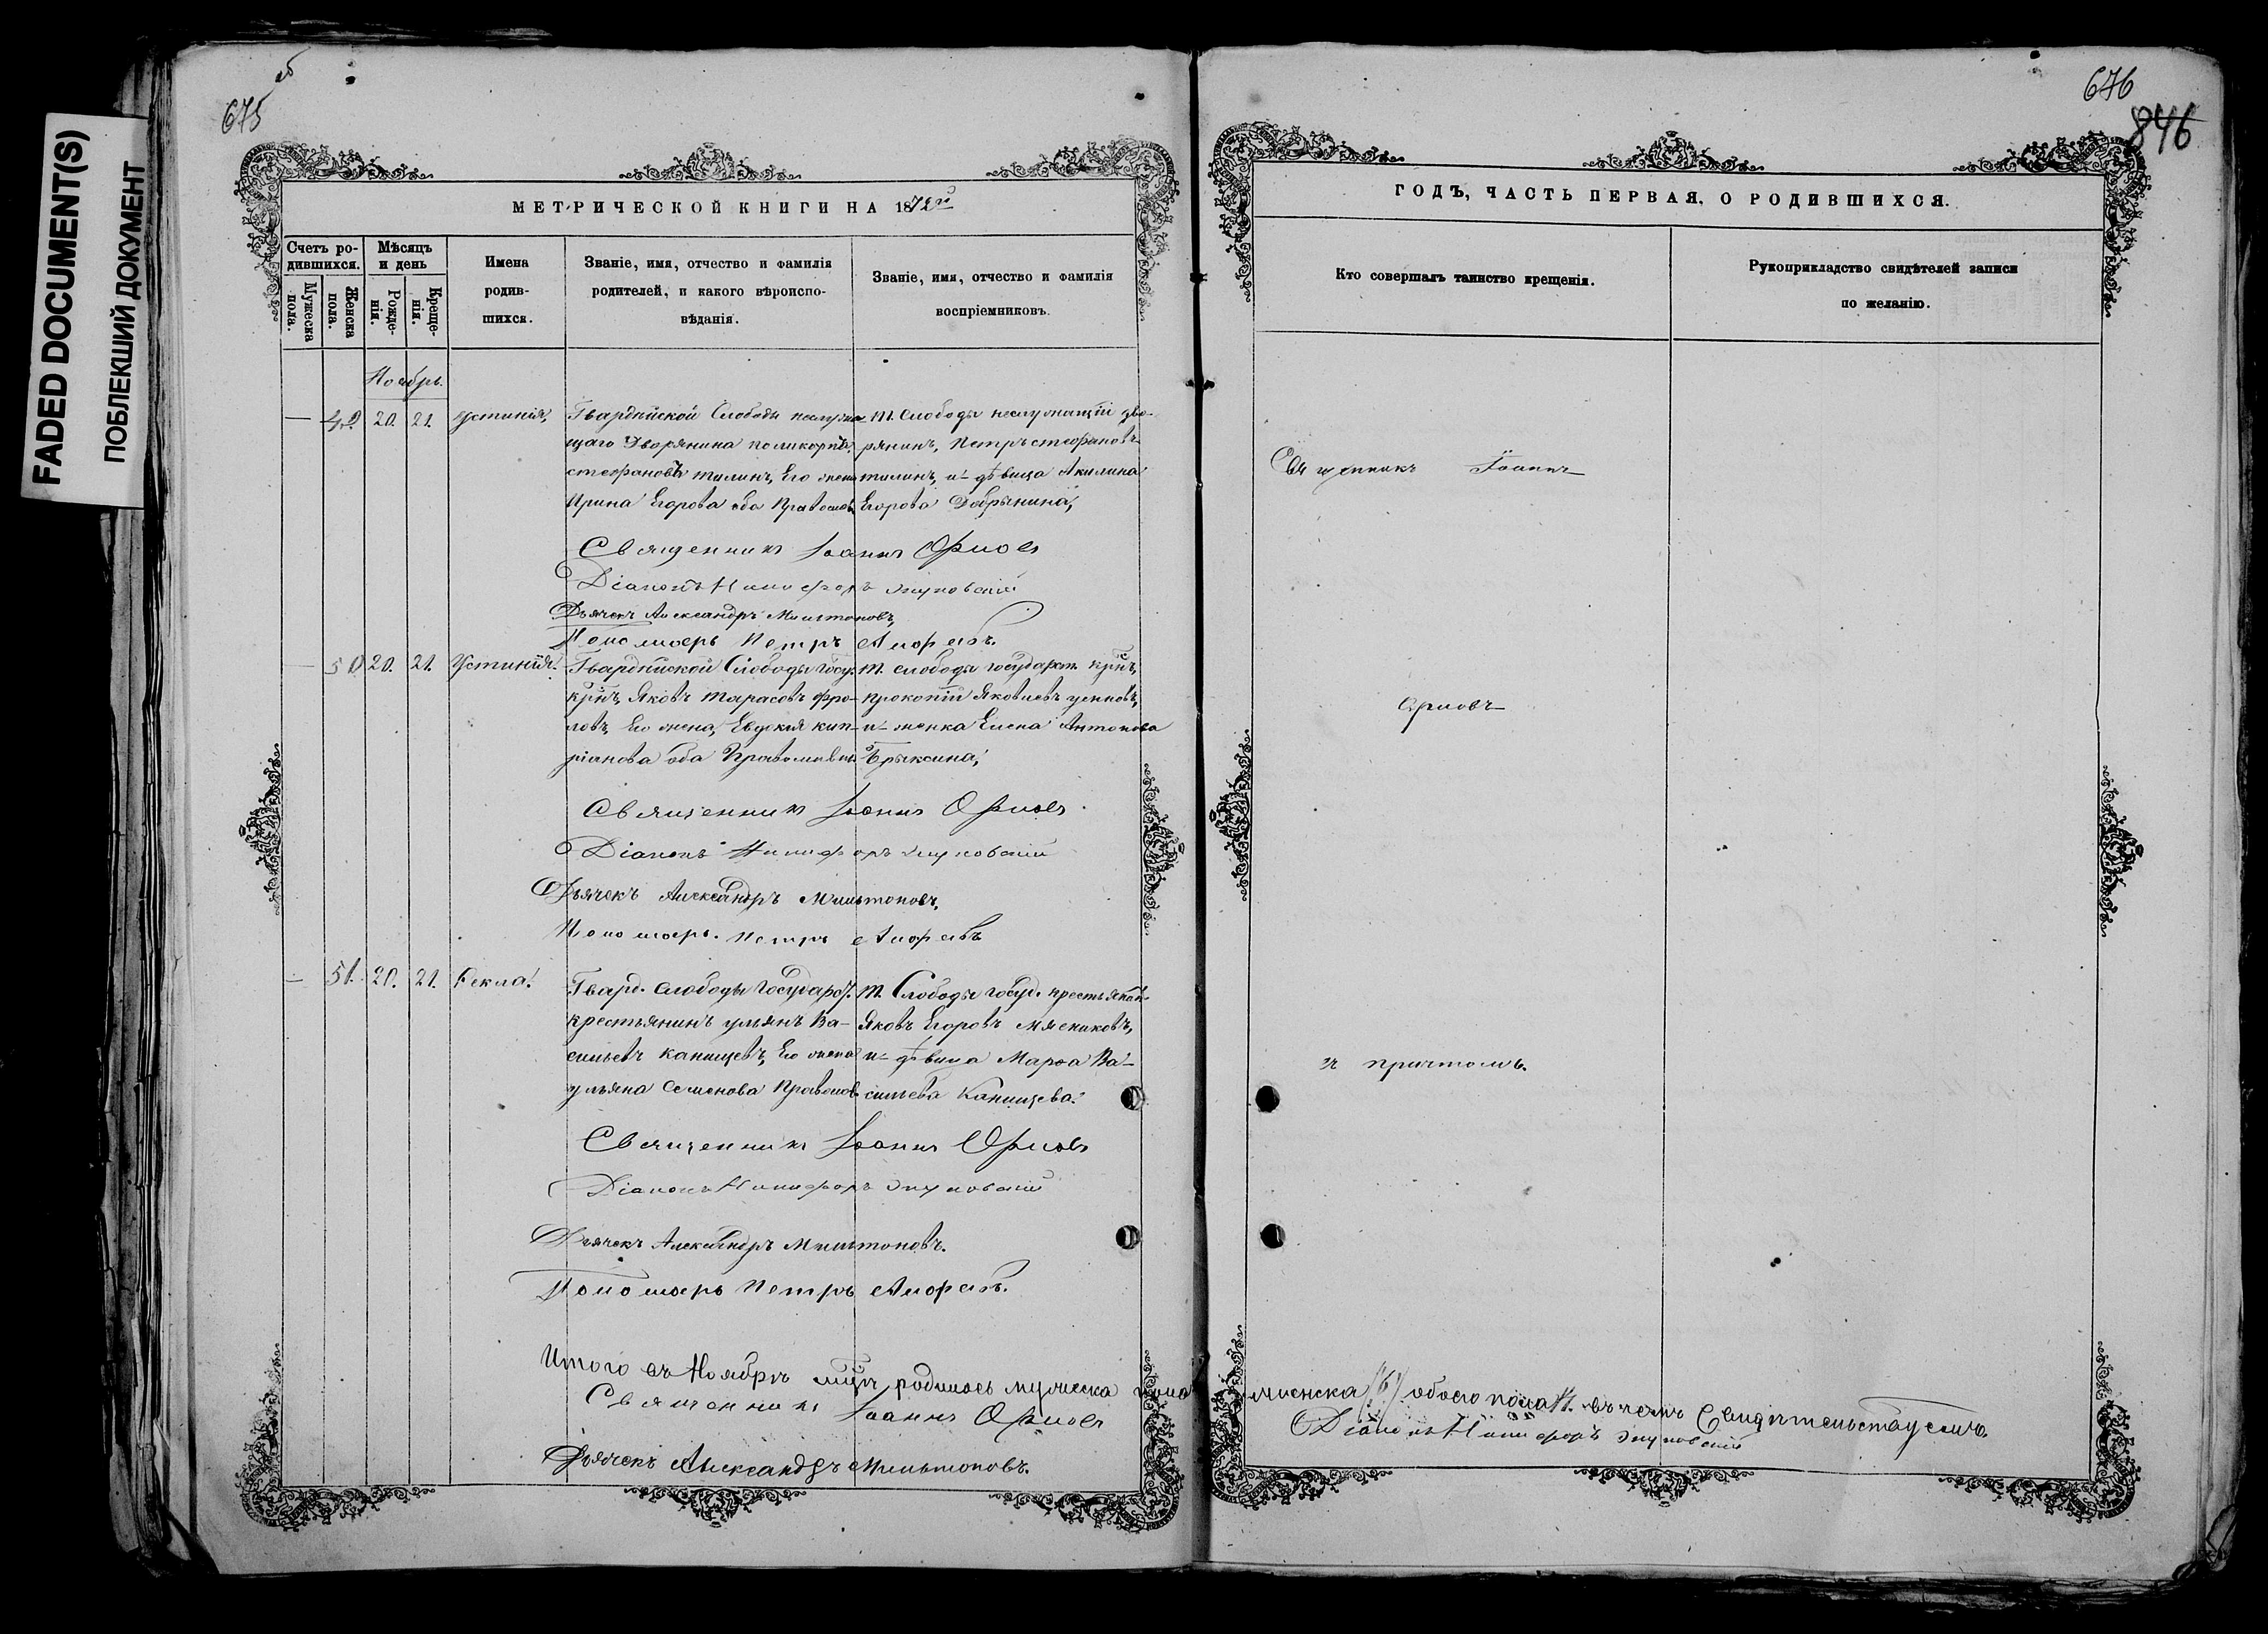 FADED DOCUMENT(S)
ПОБЛЕКШИЙ ДОКУМЕНТ
об
675
МЕТРИЧЕСКОЙ КНИГИ НА 1872й
Счетъ ро-
дившихся.
Мужеска
пола.
Женска
пола.
Мѣсяцъ
и день
Рожде-
нія.
Креще-
нія.
Имена
родив-
шихся.
Званіе, имя, отчество и фамилія
родителей, и какого вѣроиспо-
вѣданія.
Званіе, имя, отчество и фамилія
воспріемниковъ.
Ноябрь.
— 49 20. 21. Устинія,
Гвардейской Слободы неслужа-
щаго Дворянина Поликарпъ
Стефановъ Талинъ, Его жена
Ирина Егорова оба Православ.
т. Слободы неслужащій дво-
рянинъ, Петръ Стефановъ
Талинъ, и дѣвица Акилина
Егорова Добрынина,
Священникъ Іоаннъ Орлов
Діаконъ Никифоръ
Дьячекъ Александръ Мильтоновъ,
Пономарь Петръ
— 50 20. 21. Устинія.
Гвардейской Слободы Госу.
крнъ, Яковъ Тарасовъ Фро-
ловъ, Его жена, Евдокія Кип-
ріанова оба Православны
т. слободы государст. крнъ,
Прокопій Яковлевъ
и женка Елена Антонова
Брыксина,
Священникъ Іоаннъ Орловъ
Діаконъ Никифоръ
Дьячекъ Александръ Мильтоновъ,
Пономарь Петръ
— 51. 20. 21. Фекла.
Гвард. Слободы Государст.
крестьянинъ Ульянъ Ва-
сильевъ Канищевъ, Его жена
Ульяна Семенова Православ.
т. Слободы Госуд. крестьянинъ
Яковъ Егоровъ Мясниковъ,
и дѣвица Марѳа Ва-
сильева Канищева.
Священникъ Іоаннъ Орловъ
Діаконъ Никифоръ
Дьячекъ Александръ Мильтоновъ.
Пономарь Петръ
Итого въ Ноябрѣ мцѣ родилось мужеска пола
Священникъ Іоаннъ Орловъ
Дьячекъ Александръ Мильтоновъ.
676
846
ГОДЪ, ЧАСТЬ ПЕРВАЯ, О РОДИВШИХСЯ.
Кто совершалъ таинство крещенія.
Рукоприкладство свидѣтелей записи
по желанію.
Священникъ Іоаннъ
Орловъ
съ причтомъ.
женска (6) обоего пола въ чемъ Свидѣтельствуемъ.
Діаконъ Никифоръ